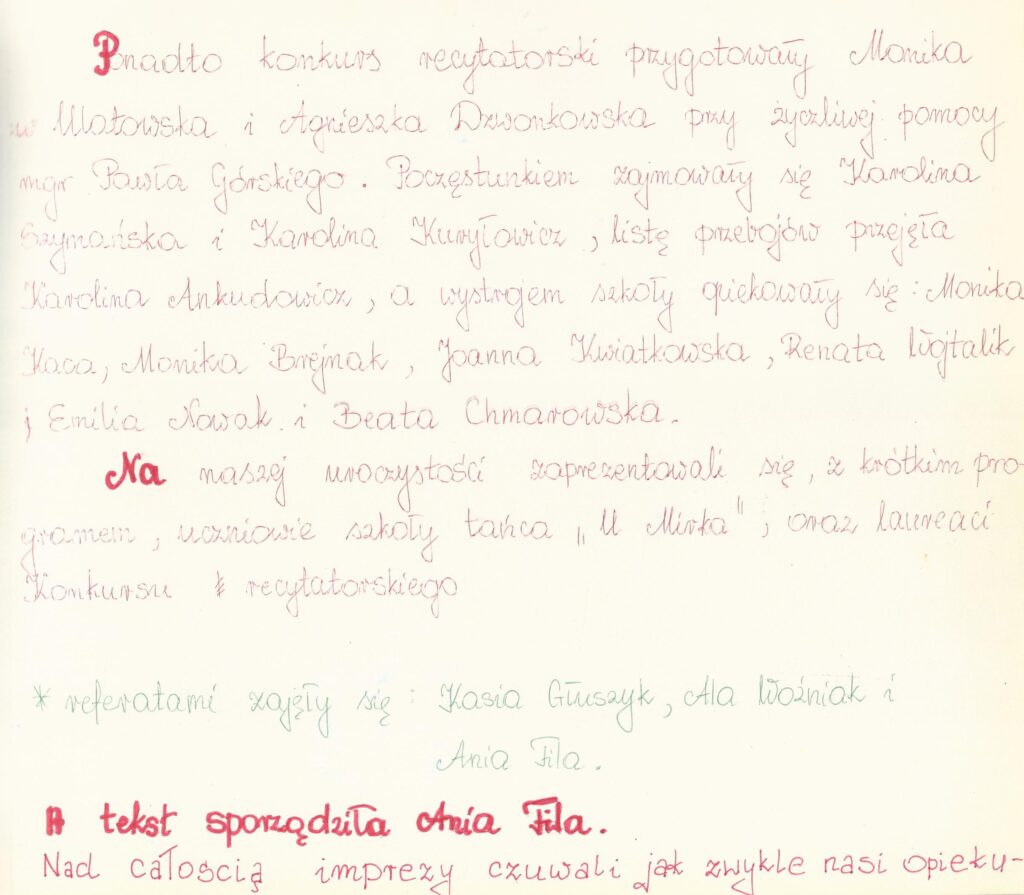 Ponadto konkurs recytatorski przygotowały Monika
Ulatowska i Agnieszka Dzwonkowska przy życzliwej pomocy
mgr Pawła Górskiego. Poczęstunkiem zajmowały się Karolina
Szymańska i Karolina Kuryłowicz, listę przebojów przejęła
Karolina Ankudowicz, a wystrojem szkoły opiekowały się: Monika
Kaca, Monika Brejnak, Joanna Kwiatkowska, Renata Wojtalik
j Emilia Nowak i Beata Chmarowska.
Na naszej uroczystości zaprezentowali się, z krótkim pro-
gramem, uczniowie szkoły tańca „U Mirka”, oraz laureaci
Konkursu recytatorskiego
* referatami zajęły się: Kasia Głuszyk, Ala Woźniak i
Ania Fila.
A tekst sporządziła Ania Fila.
Nad całością imprezy czuwali jak zwykle nasi opieku-